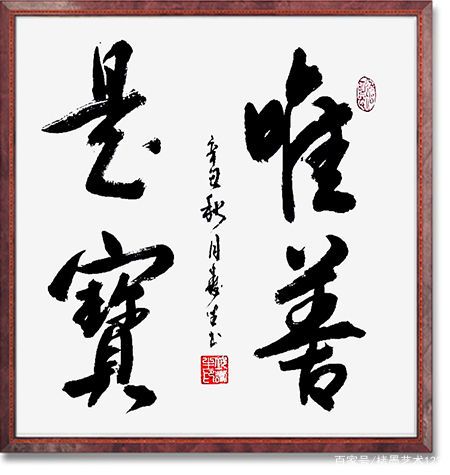 唯善
是寶
辛丑秋月
百家号/